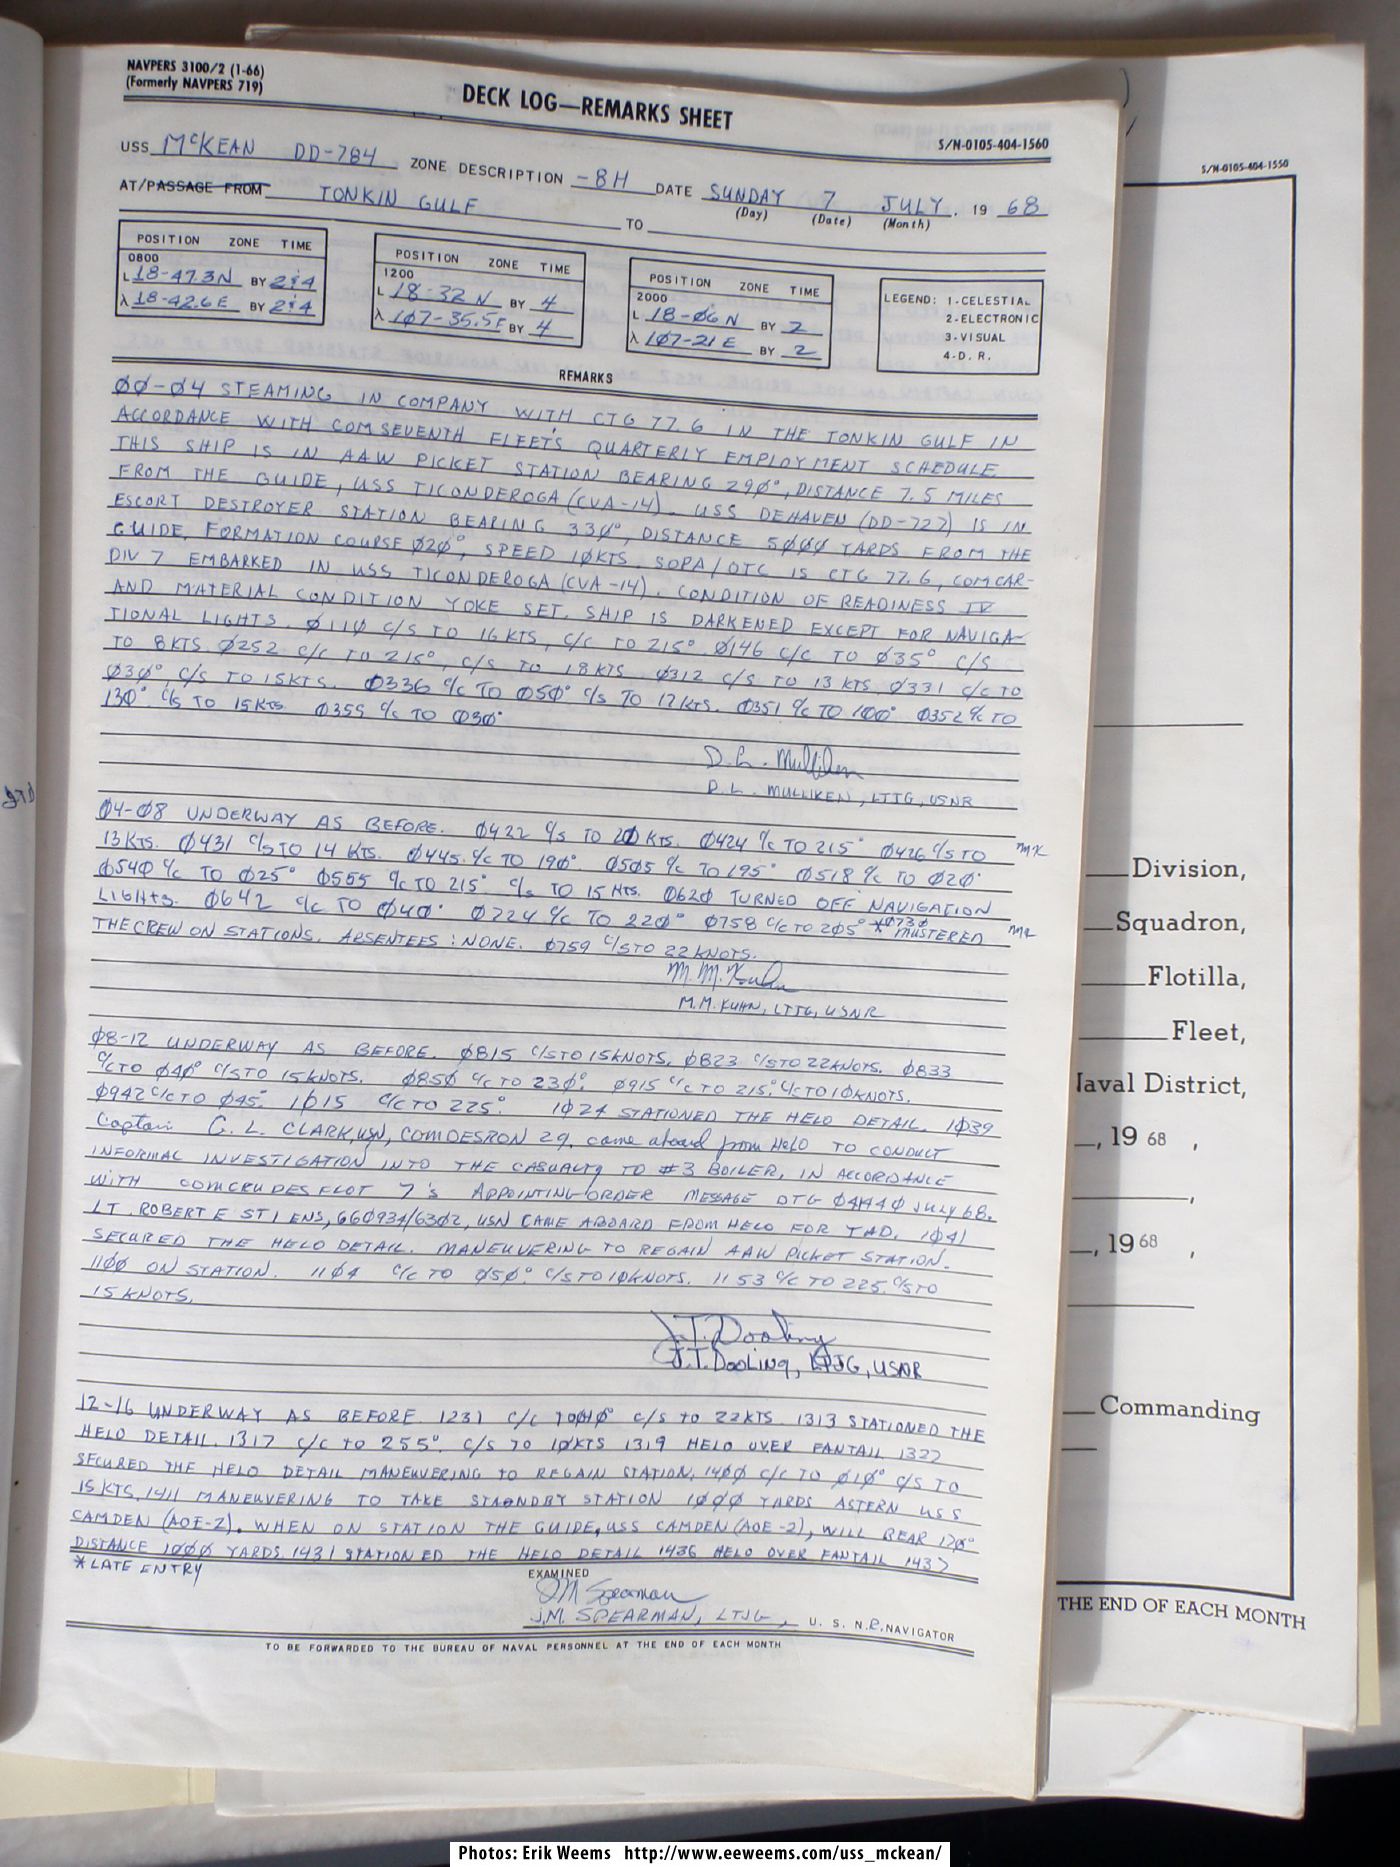 NAVPERS 3100/2 (1-66)
(Formerly NAVPERS 719)
DECK LOG—REMARKS SHEET
S/N-0105-404-1560
USS McKEAN DD-784 ZONE DESCRIPTION -8H DATE SUNDAY 7 JULY, 19 68
(Day) (Date) (Month)
AT/PASSAGE FROM TONKIN GULF TO
POSITION ZONE TIME
0800
L 18-47.3N BY 2&4
λ 18-42.6E BY 2&4
POSITION ZONE TIME
1200
L 18-32 N BY 4
λ 107-35.5E BY 4
POSITION ZONE TIME
2000
L 18-06 N BY 2
λ 107-21 E BY 2
LEGEND: 1-CELESTIAL
2-ELECTRONIC
3-VISUAL
4-D. R.
REMARKS
00-04 STEAMING IN COMPANY WITH CTG 77.6 IN THE TONKIN GULF IN
ACCORDANCE WITH COMSEVENTH FLEET'S QUARTERLY EMPLOYMENT SCHEDULE
THIS SHIP IS IN AAW PICKET STATION BEARING 290°, DISTANCE 7.5 MILES
FROM THE GUIDE, USS TICONDEROGA (CVA-14). USS DEHAVEN (DD-727) IS IN
ESCORT DESTROYER STATION BEARING 330°, DISTANCE 5000 YARDS FROM THE
GUIDE. FORMATION COURSE 020°, SPEED 10KTS. SOPA/OTC IS CTG 77.6, COMCAR-
DIV 7 EMBARKED IN USS TICONDEROGA (CVA-14). CONDITION OF READINESS IV
AND MATERIAL CONDITION YOKE SET. SHIP IS DARKENED EXCEPT FOR NAVIGA-
TIONAL LIGHTS. 0110 C/S TO 16 KTS, C/C TO 215° 0146 C/C TO 035° C/S
TO 8KTS. 0252 C/C TO 215°, C/S TO 18 KTS 0312 C/S TO 13 KTS. 0331 C/C TO
030°, C/S TO 15KTS. 0336 C/C TO 050° C/S TO 12KTS. 0351 C/C TO 100° 0352 C/C TO
130° C/S TO 15KTS. 0355 C/C TO 030°
D. L. Mulliken
D. L. MULLIKEN, LTJG, USNR
04-08 UNDERWAY AS BEFORE. 0422 C/S TO 20 KTS. 0424 C/C TO 215° 0426 C/S TO MK
13KTS. 0431 C/S TO 14 KTS. 0445 C/C TO 190° 0505 C/C TO 195° 0518 C/C TO 020°
0540 C/C TO 025° 0555 C/C TO 215° C/S TO 15 KTS. 0620 TURNED OFF NAVIGATION
LIGHTS. 0642 C/C TO 040° 0724 C/C TO 220° 0758 C/C TO 205° *0730 MUSTERED MK
THE CREW ON STATIONS. ABSENTEES: NONE. 0759 C/S TO 22 KNOTS.
M. M. Kuhn
M. M. KUHN, LTJG, USNR
08-12 UNDERWAY AS BEFORE. 0815 C/S TO 15KNOTS. 0823 C/S TO 22KNOTS. 0833
C/C TO 040° C/S TO 15KNOTS. 0850 C/C TO 230°. 0915 C/C TO 215°. C/C TO 10KNOTS.
0942 C/C TO 045° 1015 C/C TO 225° 1024 STATIONED THE HELO DETAIL. 1039
Captain G. L. CLARK, USN, COMDESRON 29, came aboard from HELO TO CONDUCT
INFORMAL INVESTIGATION INTO THE CASUALTY TO #3 BOILER, IN ACCORDANCE
WITH COMCRUDESFLOT 7'S APPOINTING ORDER MESSAGE DTG JULY 68.
LT. ROBERT E STIENS, 660934/6302, USN CAME ABOARD FROM HELO FOR TAD. 1041
SECURED THE HELO DETAIL. MANEUVERING TO REGAIN AAW PICKET STATION.
1100 ON STATION. 1104 C/C TO 050° C/S TO 10KNOTS. 1153 C/C TO 225. C/S TO
15 KNOTS.
J. T. Dooling
J. T. DOOLING, LTJG, USNR
12-16 UNDERWAY AS BEFORE 1231 C/C TO 010° C/S TO 22KTS. 1313 STATIONED THE
HELO DETAIL. 1317 C/C TO 255° C/S TO 10KTS 1319 HELO OVER FANTAIL 1322
SECURED THE HELO DETAIL MANEUVERING TO REGAIN STATION. 1400 C/C TO 010° C/S TO
15 KTS. 1411 MANEUVERING TO TAKE STANDBY STATION 1000 YARDS ASTERN USS
CAMDEN (AOE-2). WHEN ON STATION THE GUIDE, USS CAMDEN (AOE-2), WILL BEAR 120°
DISTANCE 1000 YARDS. 1431 STATIONED THE HELO DETAIL 1436 HELO OVER FANTAIL 1437
*LATE ENTRY
EXAMINED
J M Spearman
J.M. SPEARMAN, LTJG, U. S. N.R. NAVIGATOR
TO BE FORWARDED TO THE BUREAU OF NAVAL PERSONNEL AT THE END OF EACH MONTH
S/N-0105-404-1550
Division,
Squadron,
Flotilla,
Fleet,
Naval District,
, 19 68 ,
,
, 19 68 ,
Commanding
THE END OF EACH MONTH
Photos: Erik Weems http://www.eeweems.com/uss_mckean/